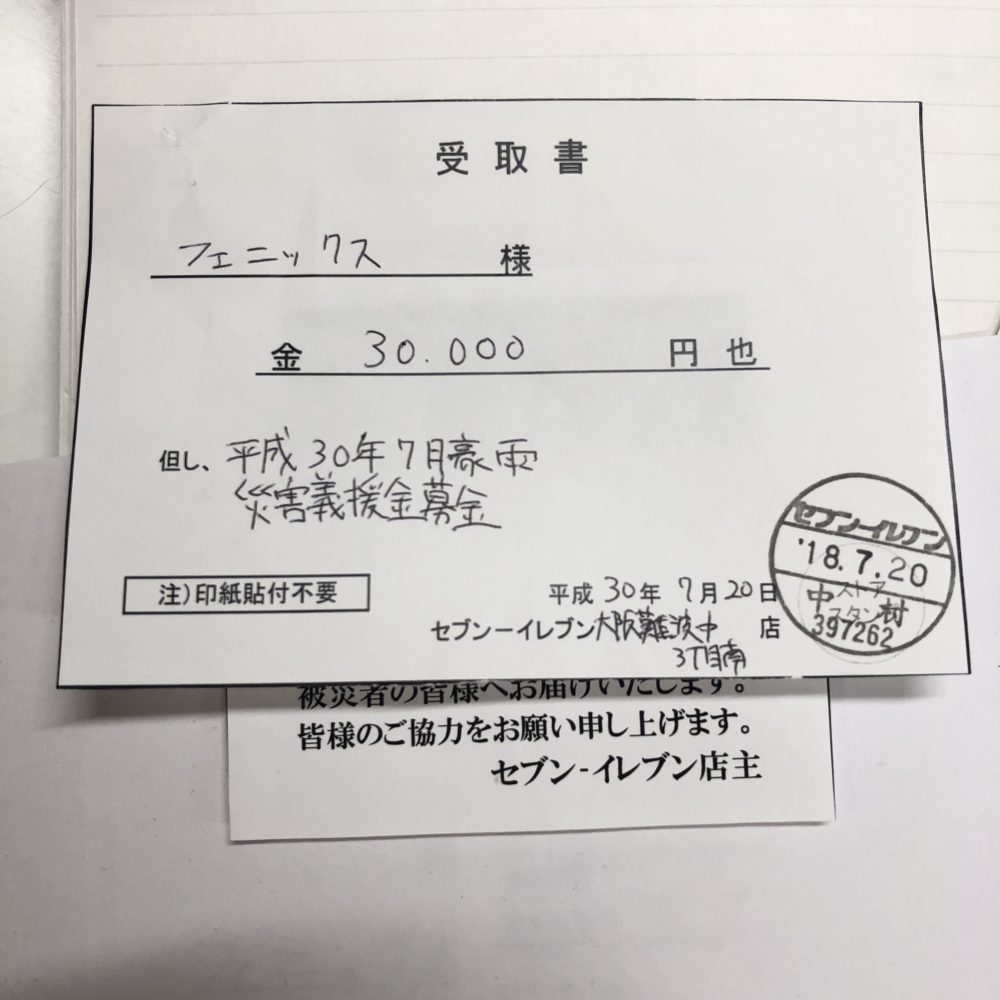 受取書
フェニックス 様
金 30.000 円也
但し、平成30年7月豪雨
災害義援金募金
注）印紙貼付不要
平成30年7月20日
セブン－イレブン大阪難波中 店
3丁目南
セブン-イレブン
'18.7.20
ストア
中 村
スタンプ
397262
被災者の皆様へお届けいたします。
皆様のご協力をお願い申し上げます。
セブン-イレブン店主